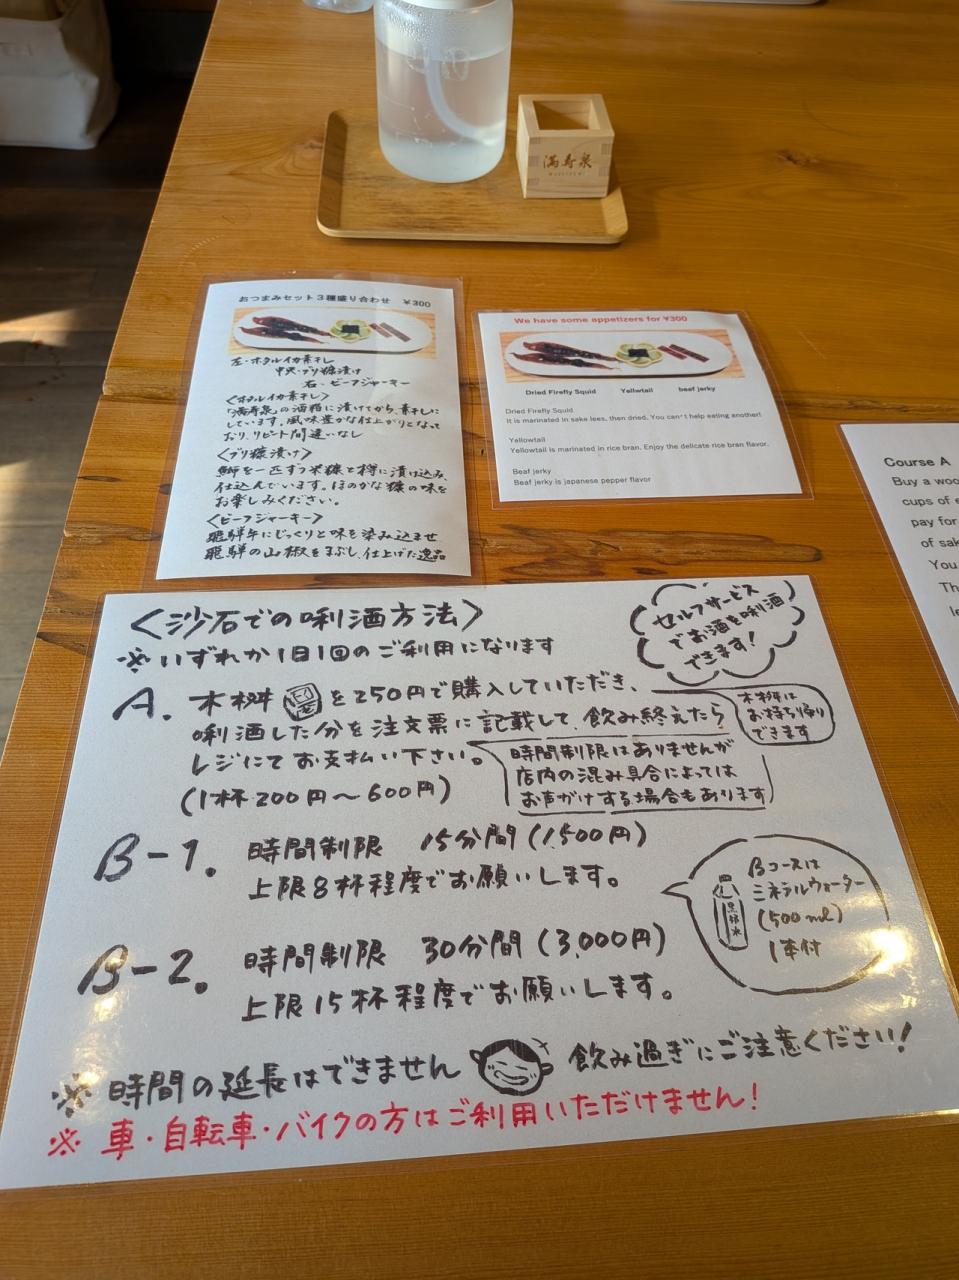 満寿泉
おつまみセット3種盛り合わせ ¥300
左・ホタルイカ素干し
中央・ブリ糠漬け
右・ビーフジャーキー
〈ホタルイカ素干し〉
「満寿泉」の酒粕に漬けてから、素干しに
しています。風味豊かな仕上がりとなって
おり、リピート間違いなし
〈ブリ糠漬け〉
鰤を一匹ずつ米糠と樽に漬け込み、
仕込んでいます。ほのかな糠の味を
お楽しみください。
〈ビーフジャーキー〉
飛騨牛にじっくりと味を染み込ませ
飛騨の山椒をまぶし、仕上げた逸品
We have some appetizers for ¥300
Dried Firefly Squid Yellwtail beef jerky
Dried Firefly Squid
It is marinated in sake lees, then dried. You can't help eating another!
Yellowtail
Yellowtail is marinated in rice bran. Enjoy the delicate rice bran flavor.
Beef jerky
Beef jerky is japanese pepper flavor
Course A
Buy a woo
cups of
pay for
of sak
You
Th
〈沙石での唎酒方法〉
セルフサービス
でお酒を唎酒
できます!
※いずれか1日1回のご利用になります
A. 木桝を250円で購入していただき、
唎酒した分を注文票に記載して、飲み終えたら
レジにてお支払い下さい。
(1杯200円〜600円)
木桝は
お持ち帰り
できます
時間制限はありませんが
店内の混み具合によっては
お声がけする場合もあります
B-1. 時間制限 15分間(1,500円)
上限8杯程度でお願いします。
B-2. 時間制限 30分間(3,000円)
上限15杯程度でお願いします。
Bコースは
ミネラルウォーター
(500ml)
1本付
※時間の延長はできません 飲み過ぎにご注意ください!
※車・自転車・バイクの方はご利用いただけません!